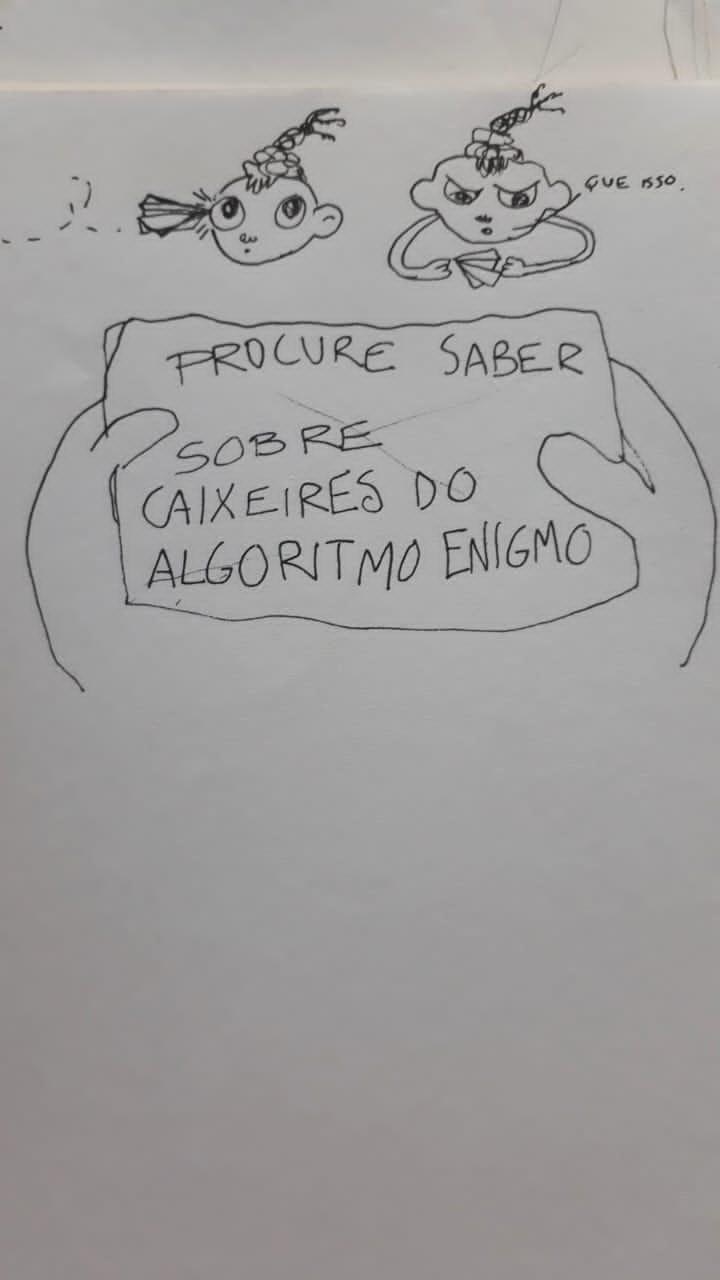 QUE ISSO.
PROCURE SABER
SOBRE
CAIXEIRES DO
ALGORITMO ENIGMO